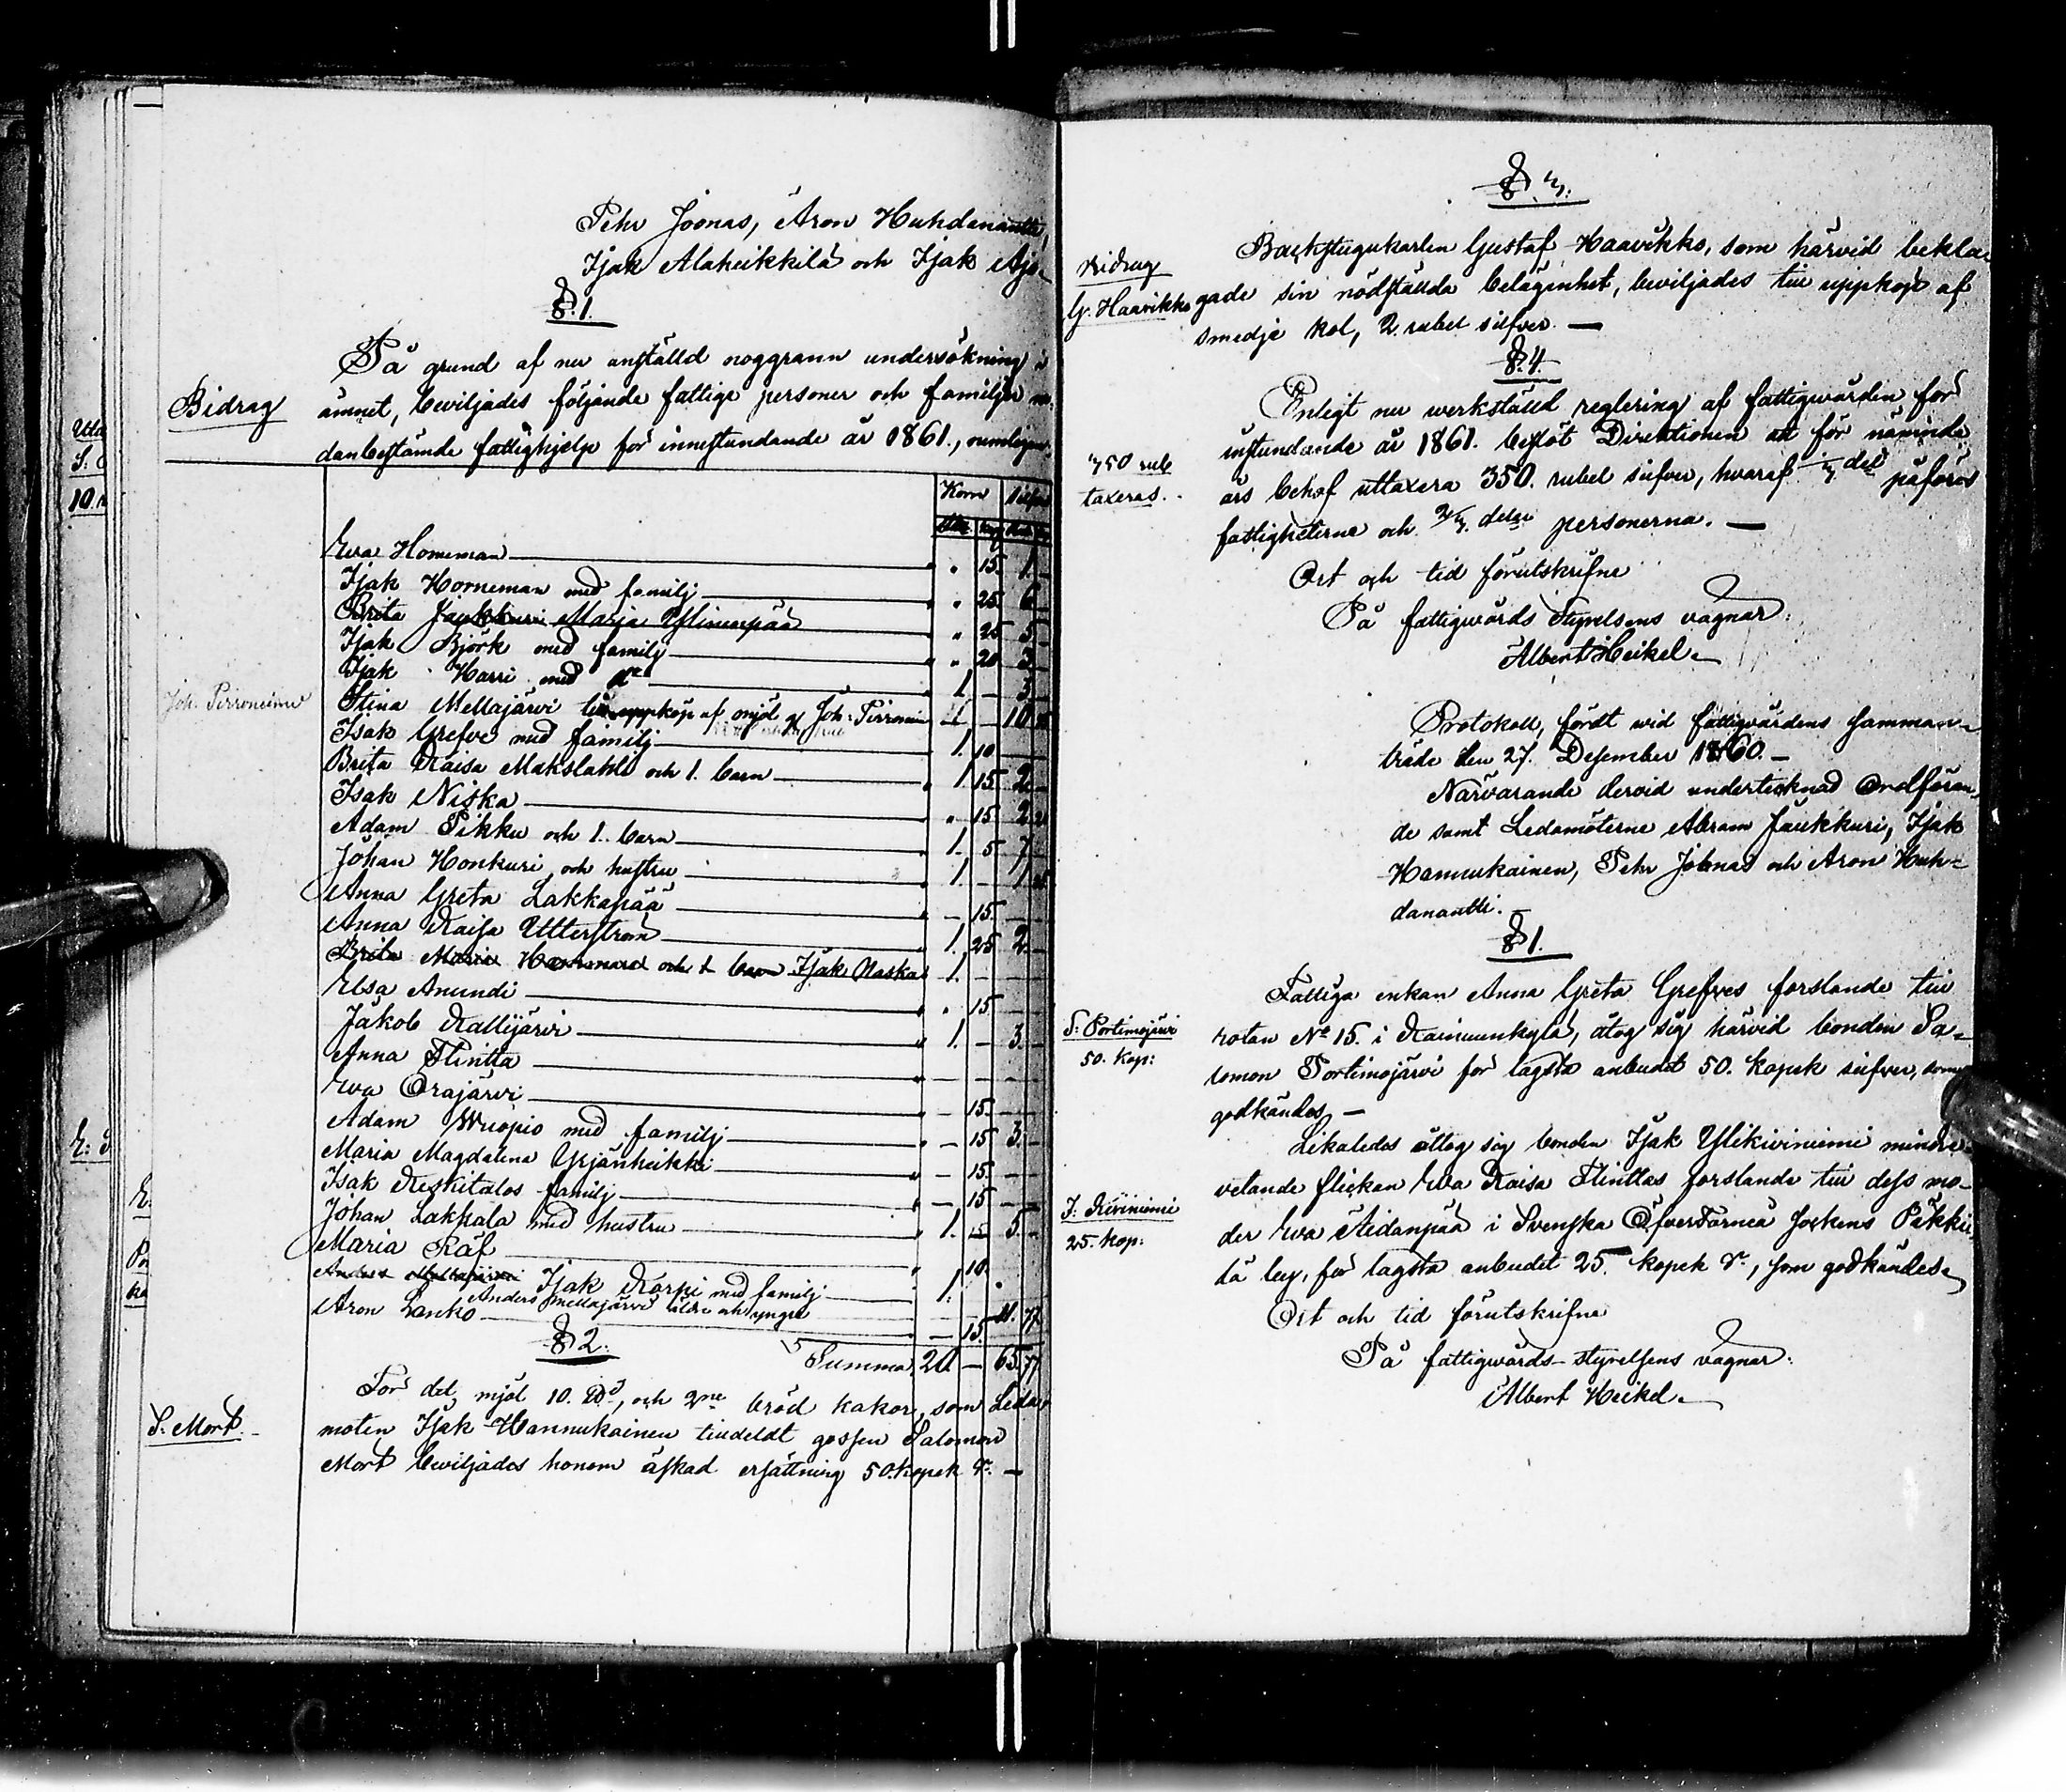 Pehr Joonas, Aron Huhdanantti,
Isak Alaheikkilä och Isak Ajo-
§ 1.
På grund af nu anstäld noggrann undersökning i
Bidrag
ämnet, beviljades följande fattige personer och familjer ne-
danbestämde fattighjelp för innestundande år 1861., nemligen:
Korn Silfver
Eva Horneman " 15. 1. –
Isak Horneman med familj " 25. 6 –
Brita Jaukkuri Maria Yliniempää " 25 5 –
Isak Björk med familj " 20 3 –
Isak Harri med do 1 – 3 –
Joh: Pirroniemi
Stina Mellajärvi till uppköp af mjöl af Joh: Pirroniemi 1 – 10
Isak Grefve med familj 1. 10 –
Brita Kaisa Makslahti och 1. barn 1 15 2 –
Isak Niska " 15 2
Adam Pikku och 1. barn 1. 5 7 –
Johan Honkuri och hustru 1. – 1
Anna Greta Lakkapää – 15. –
Anna Kaisa Utterström 1. 25 2. –
Brita Maria och 1 barn Isak Naska 1. – –
Elsa Anundi " 15 –
Jakob Kallijärvi 1. – 3. –
Anna Flintta – – –
Eva Orajärvi – 15. –
Adam Wuopio med familj – 15 3. –
Maria Magdalena Yrjänheikki – 15. –
Isak Keskitalos familj – 15 –
Johan Lakkala med hustru 1. 15 5. –
Maria Räf 10.
Anders Mellajärvi Isak Karpi med familj 1.
Anders Mellajärvi äldre och yngre
Aron Lanko – 15. 11. 77
§ 2.
Summa 20 – 65. 77
För det mjöl 10. och 2ne bröd kakor, som Leda-
S. Mort.
moten Isak Hannukainen tilldeldt gossen Salomon
Mort beviljades honom äskad ersättning 50. kopek Sr. –
§ 3.
Bidrag
Backstugukarlen Gustaf Haavikko, som härvid bekla-
G. Haavikko
gade sin nödstälda belägenhet, beviljades till uppköp af
smedje kol, 2. rubel silfver. –
§. 4.
Enligt nu werkstäld reglering af fattigwården för
instundande år 1861. beslöt Direktionen att för nämnde
350 rub
taxeras.
års behof uttaxera 350. rubel silfver, hvaraf 1/3 del påföres
fastigheterne och 2/3 delar personerna. –
Ort och tid förutskrifne
På fattigwårds Styrelsens vägnar:
Albert Heikel.
Protokoll, fördt wid fattigvårdens samman-
träde den 27. Desember 1860. –
Närvarande dervid undertecknad Ordföran-
de samt Ledamöterne Abram Jaukkuri, Isak
Hannukainen, Pehr Joonas och Aron Huh-
danantti. –
§ 1.
Fattiga enkan Anna Greta Grefves forslande till
S: Portimojärvi
50. kop:
rotan No 15. i Kainuunkylä, åtog sig härvid bonden Sa-
lomon Portimojärvi för lägsta anbudet 50. kopek silfver, som
godkändes. –
Likaledes åttog sig bonden Isak Ylikiviniemi mindre
vetande flickan Eva Kaisa Flinttas forslande till dess mo-
I: Kiviniemi
25. kop:
der Eva Aidanpää i Svenska ÖfverTorneå Sockens Päkki-
lä by, för lägsta anbudet 25. kopek Sr, som godkändes.
Ort och tid förutskrifne
På fattigwårds-styrelsens vägnar:
Albert Heikel.